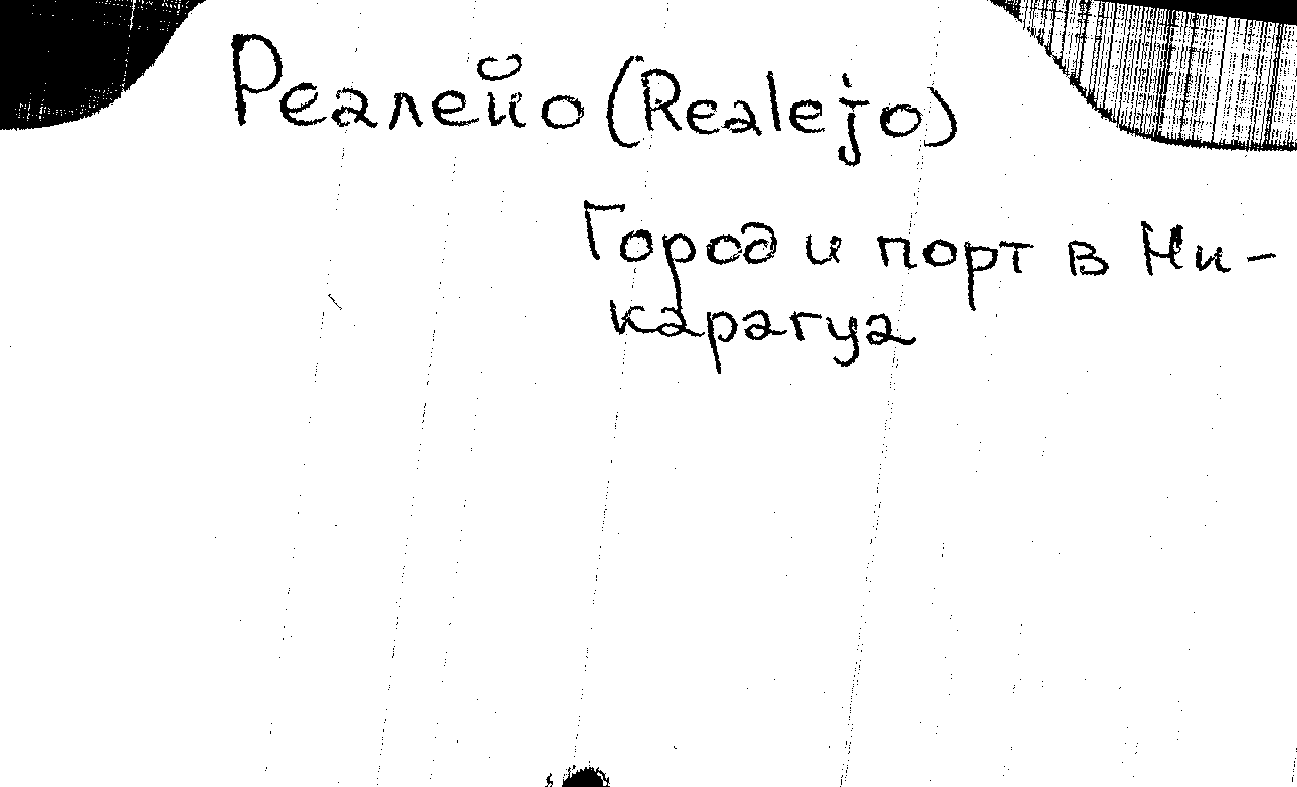 Реалейо (Realejo)
Город и порт в Ни-
карагуа